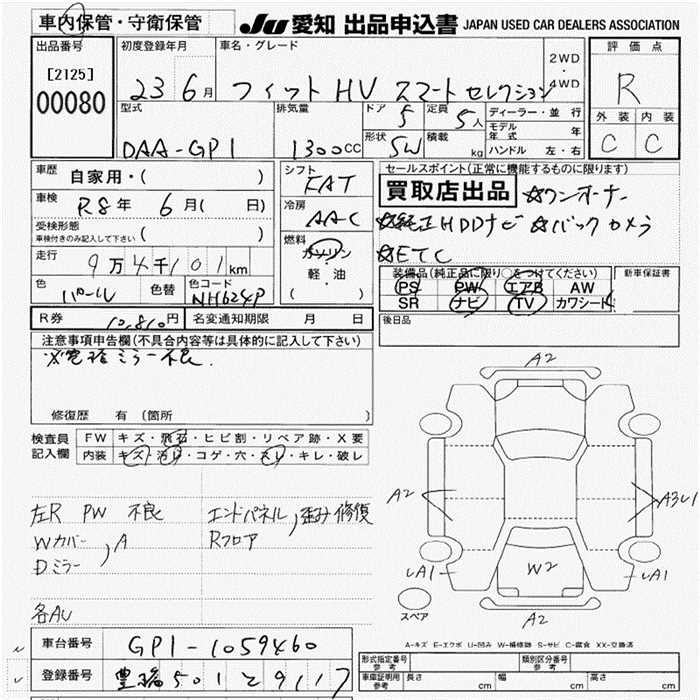 車内保管・守衛保管 JU 愛知 出品申込書 JAPAN USED CAR DEALERS ASSOCIATION
出品番号 初度登録年月 車名・グレード 2WD・4WD 評価点
[2125] 23 6月 フィット HV スマートセレクション R
00080
型式 排気量 ドア 5 定員 5人 ディーラー・並行 外装 内装
DAA-GP1 1300CC 形状 SW 積載 kg モデル年式 年 C C
ハンドル 左・右
車歴 自家用・( ) シフト FAT セールスポイント(正常に機能するものに限ります)
車検 R8年 6月( 日) 冷房 AAC 買取店出品 ☆ワンオーナー
受検形態 ☆純正HDDナビ ☆バックカメラ
車検付きのみ記入して下さい 燃料 ガソリン ☆ETC
走行 9万4千101km 軽・油 装備品(純正品に限り○をつけてください) 新車保証書
色 パール 色替 色コード NH624P ( ) PS PW エアB AW
SR ナビ TV カワシート
R券 10,810円 名変通知期限 月 日 後日品
注意事項申告欄(不具合内容等は具体的に記入して下さい)
※電格ミラー不良.
修復歴 有 (箇所 )
検査員記入欄 FW キズ・飛石・ヒビ割・リペア跡・X要
内装 キズ・汚レ・コゲ・穴・スレ・キレ・破レ
A2
A2 A3U1
左R PW 不良 エンドパネル,歪み修復
Wカバー,A Rフロア
Dミラー
W2
UA1 UA1
スペア
A2
各AU
A-キズ E-エクボ U-凹み W-補修跡 S-サビ C-腐食 XX-交換済
車台番号 GP1-1059460
登録番号 豊橋 501 と 9117
形式指定番号 参考 類別区分番号 参考
車庫証明用 参考 長さ cm 幅 cm 高さ cm